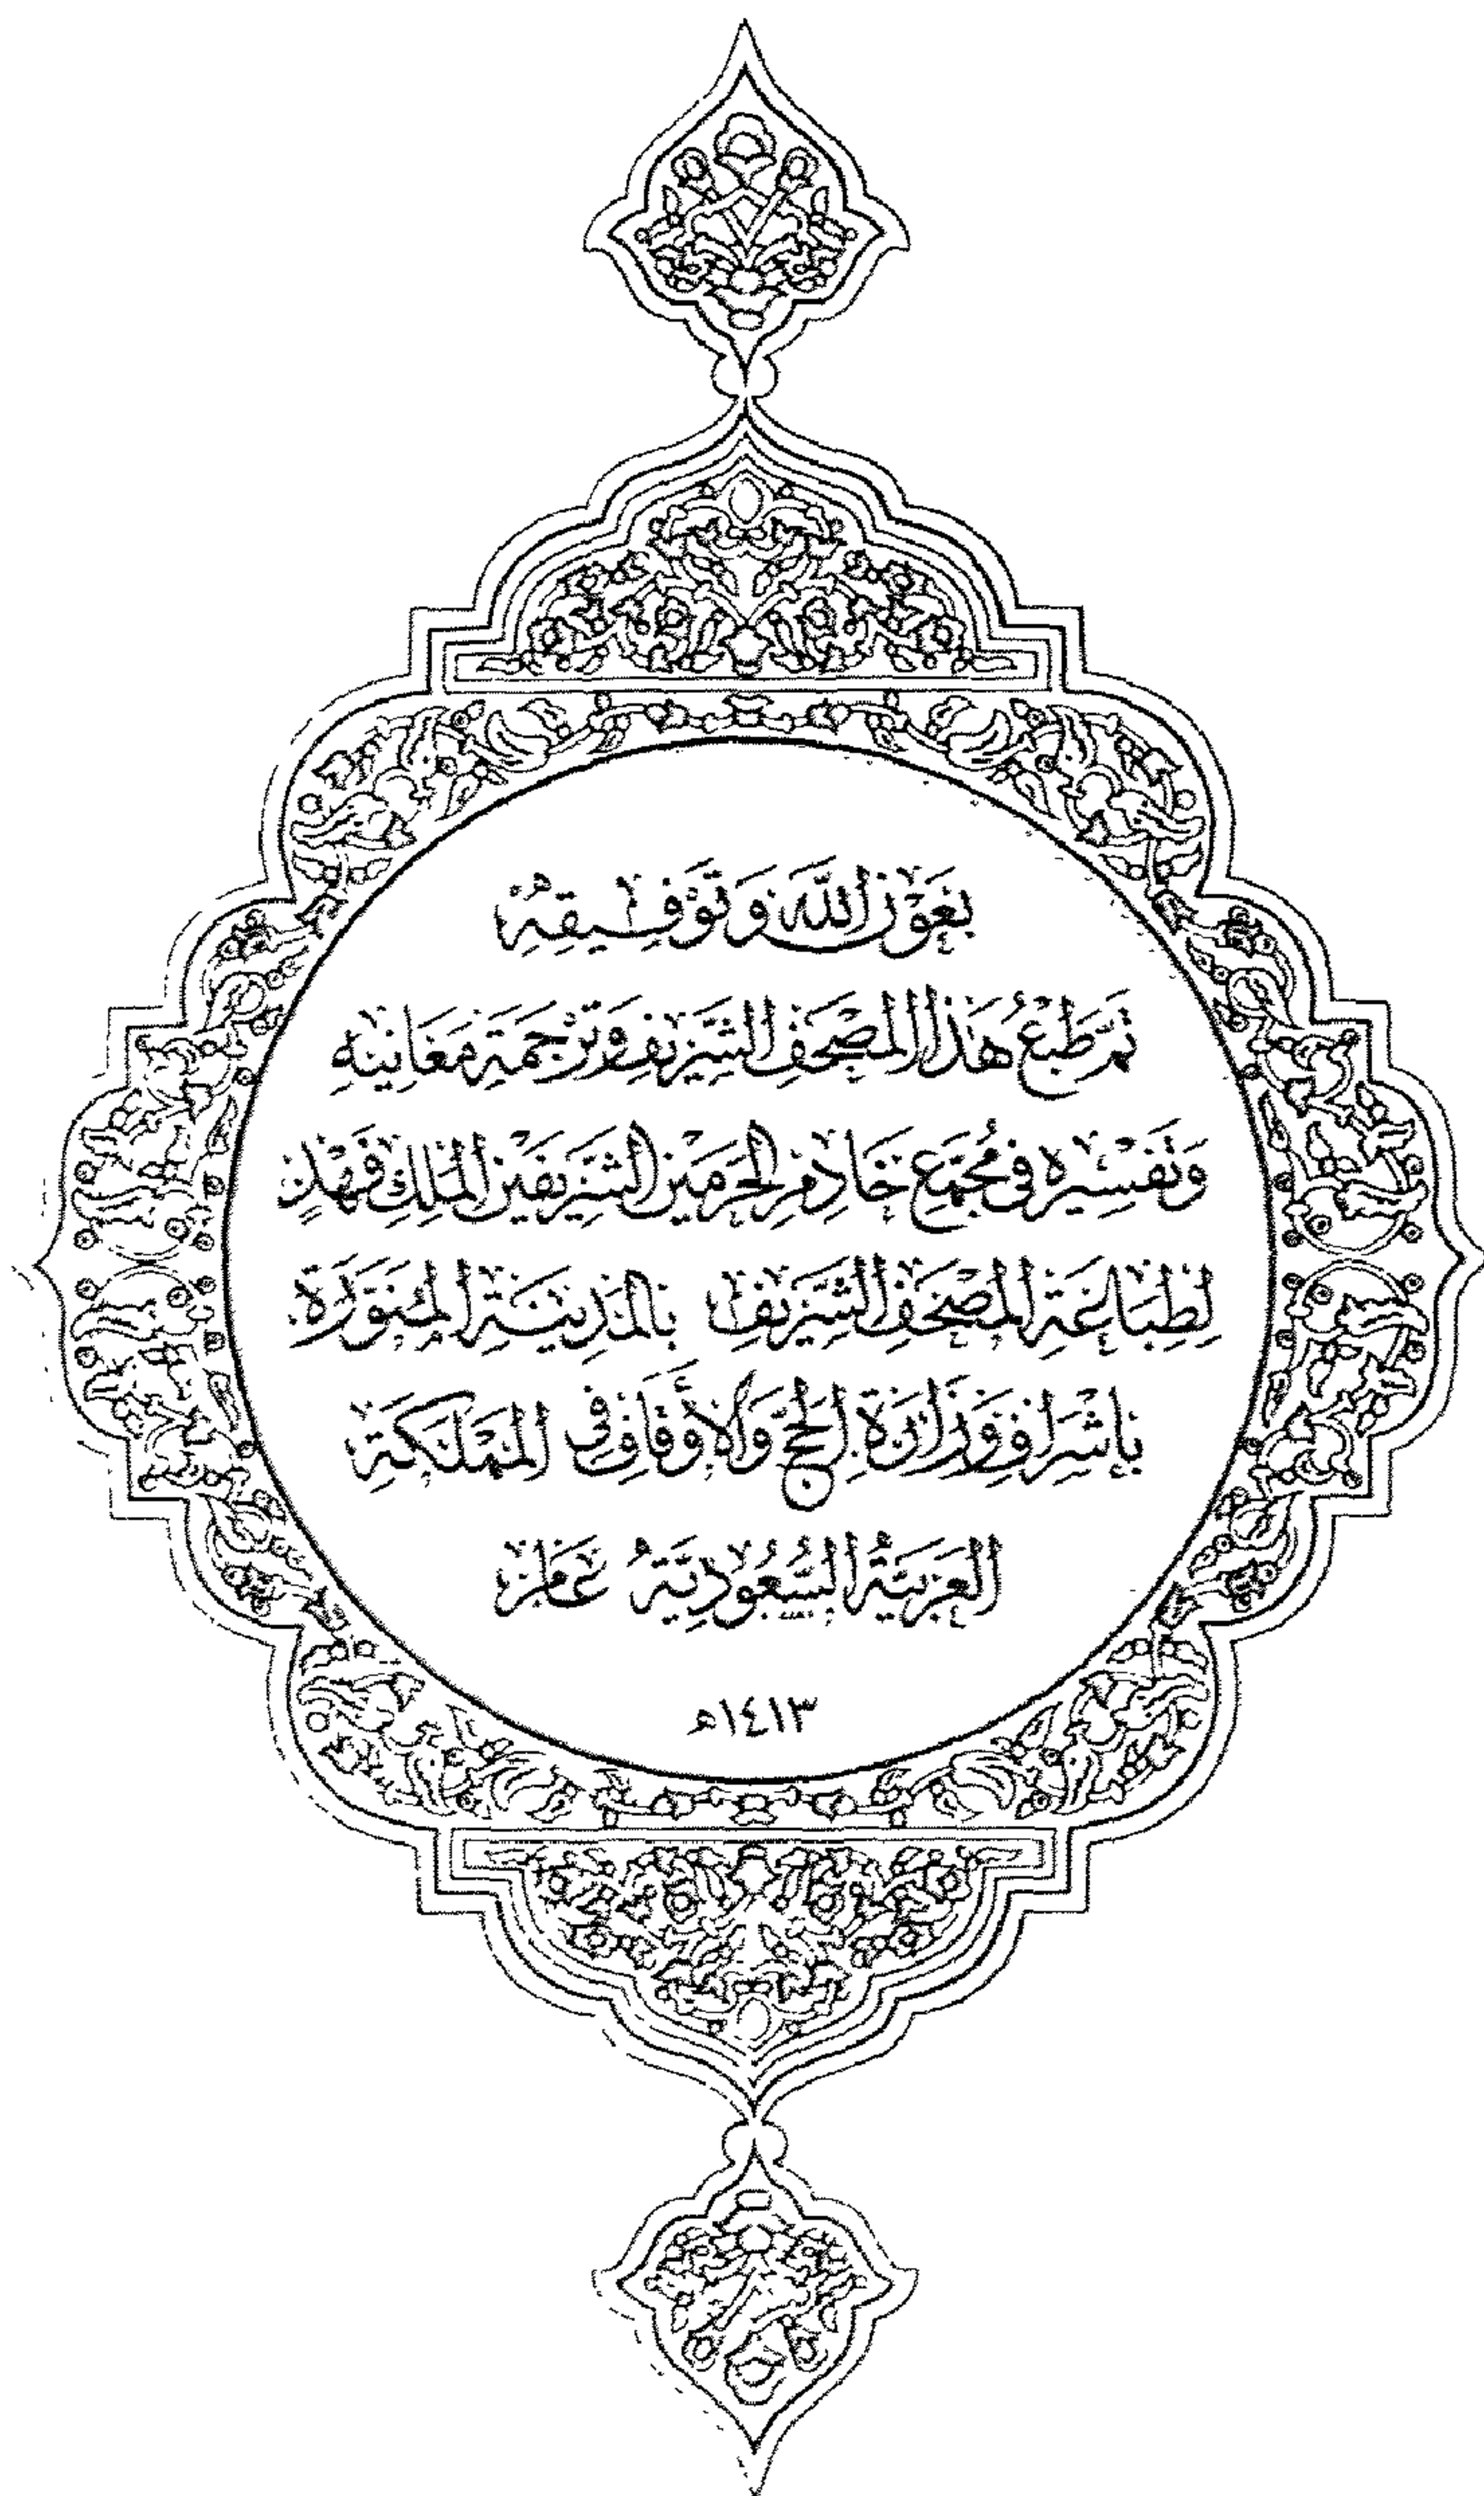 بِعَوْنِ اللَّهِ وَتَوْفِيقِهِ
تَمَّ طَبْعُ هَذَا الْمُصْحَفِ الشَّرِيفِ وَتَرْجَمَةِ مَعَانِيهِ
وَتَفْسِيرِهِ فِي مُجَمَّعِ خَادِمِ الْحَرَمَيْنِ الشَّرِيفَيْنِ الْمَلِكِ فَهْدٍ
لِطِبَاعَةِ الْمُصْحَفِ الشَّرِيفِ بِالْمَدِينَةِ الْمُنَوَّرَةِ
بِإِشْرَافِ وَزَارَةِ الْحَجِّ وَالْأَوْقَافِ فِي الْمَمْلَكَةِ
الْعَرَبِيَّةِ السُّعُودِيَّةِ عَامَ
١٤١٣هـ